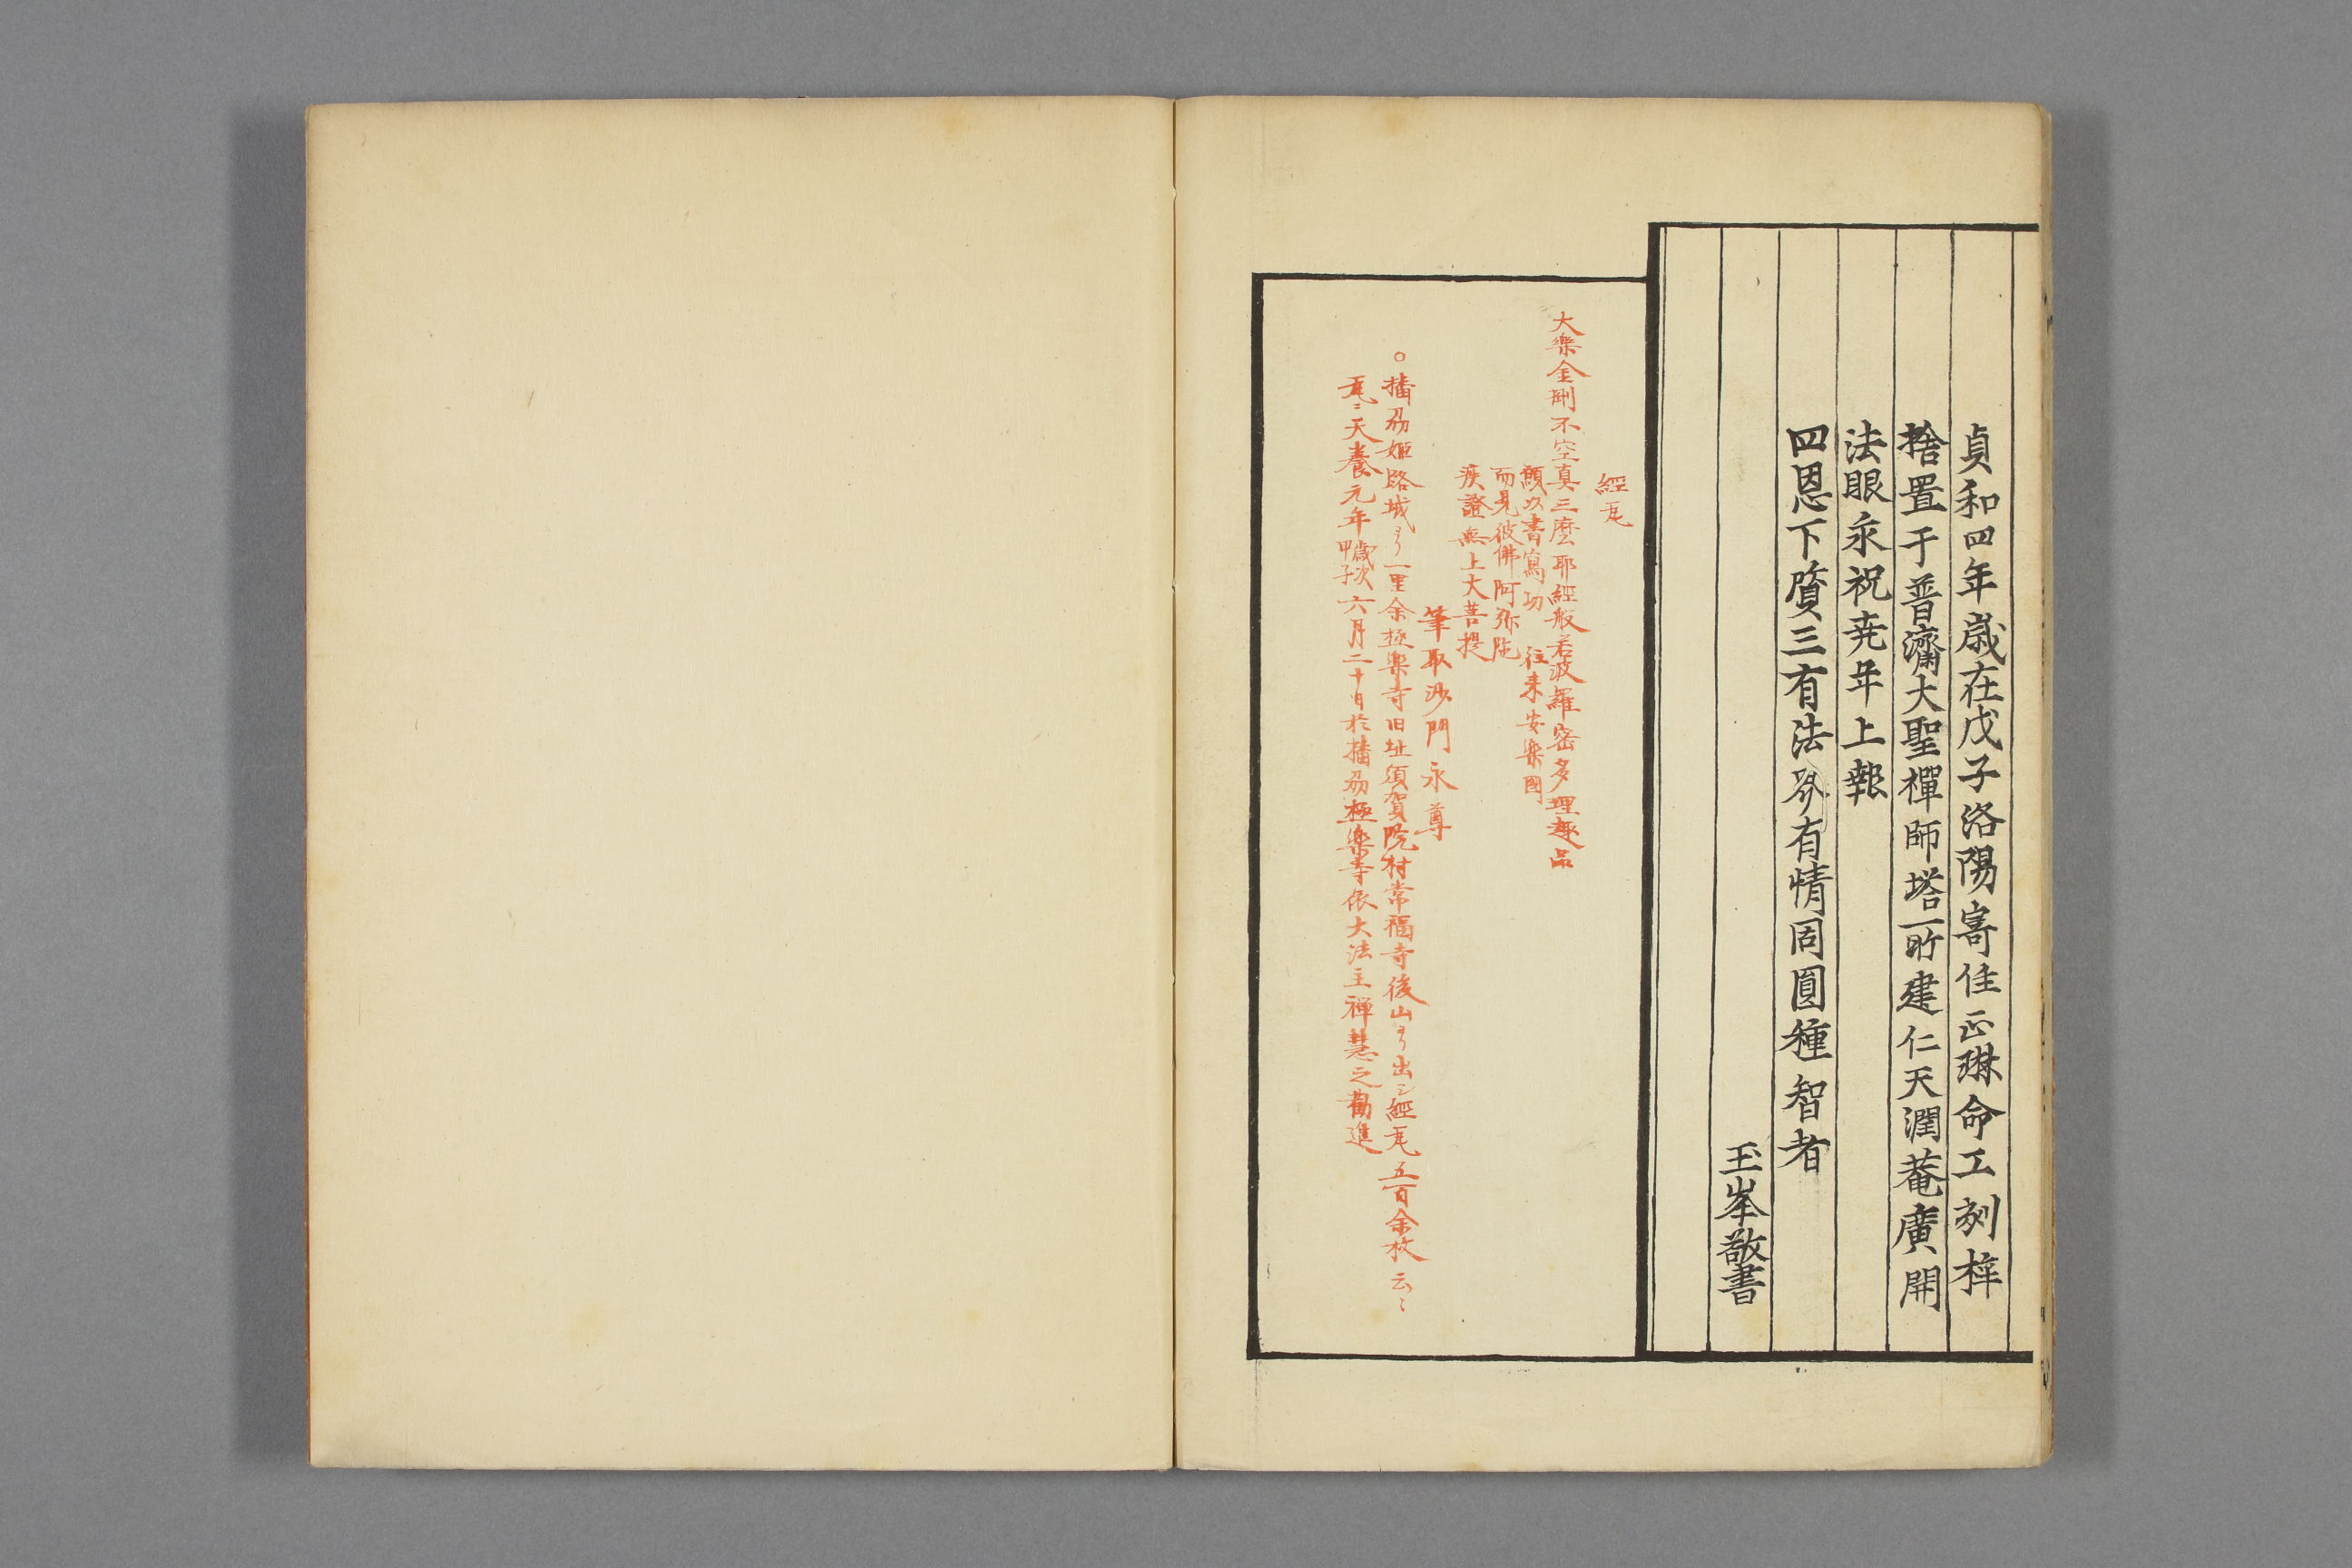 貞和四年歳在戊子洛陽寄住正琳命工刻梓
捨置于普濟大聖禪師塔所建仁天潤菴廣開
法眼永祝尭年上報
四恩下資三有法界有情同圓種智者
玉峯敬書
經瓦
大樂金剛不空真三麼耶經般若波羅密多理趣品
願以書寫功 往来安樂國
而見彼佛阿弥陁
疾證無上大菩提
筆取沙門永尊
○播刕姫路城ヨリ一里余極楽寺旧址須賀院村常福寺後山ヨリ出シ經瓦五百余枚云々
瓦ニ天養元年歳次甲子六月二十日於播刕極楽寺依大法主禅慧之勸進